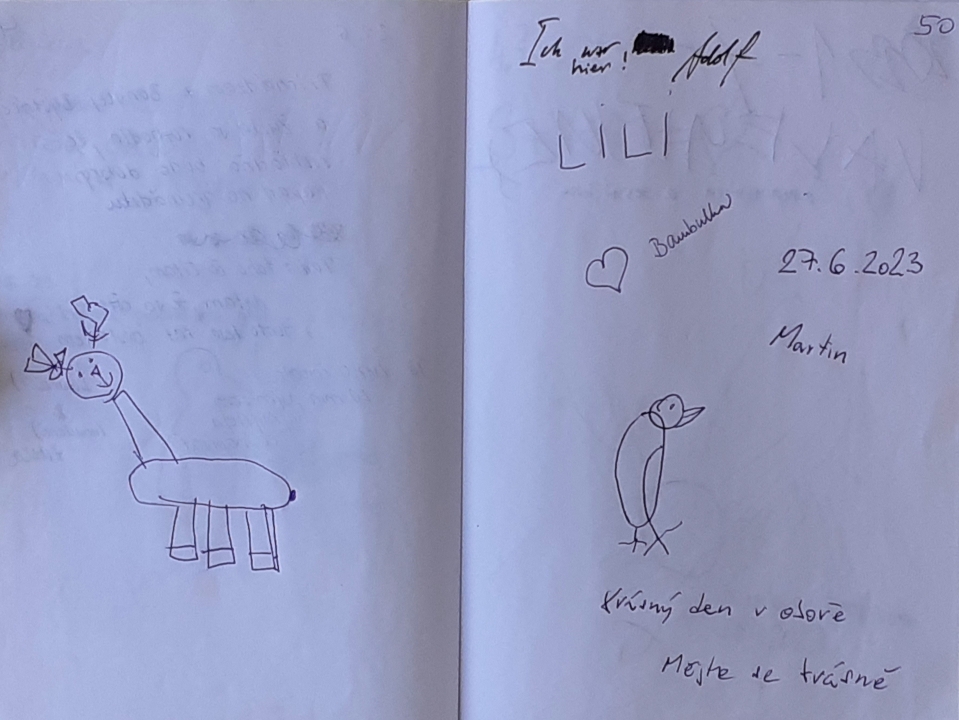 50
Ich war hier! Adolf
LILI
Bambulka
27.6.2023
Martin
Krásný den v oboře
Mějte se krásně